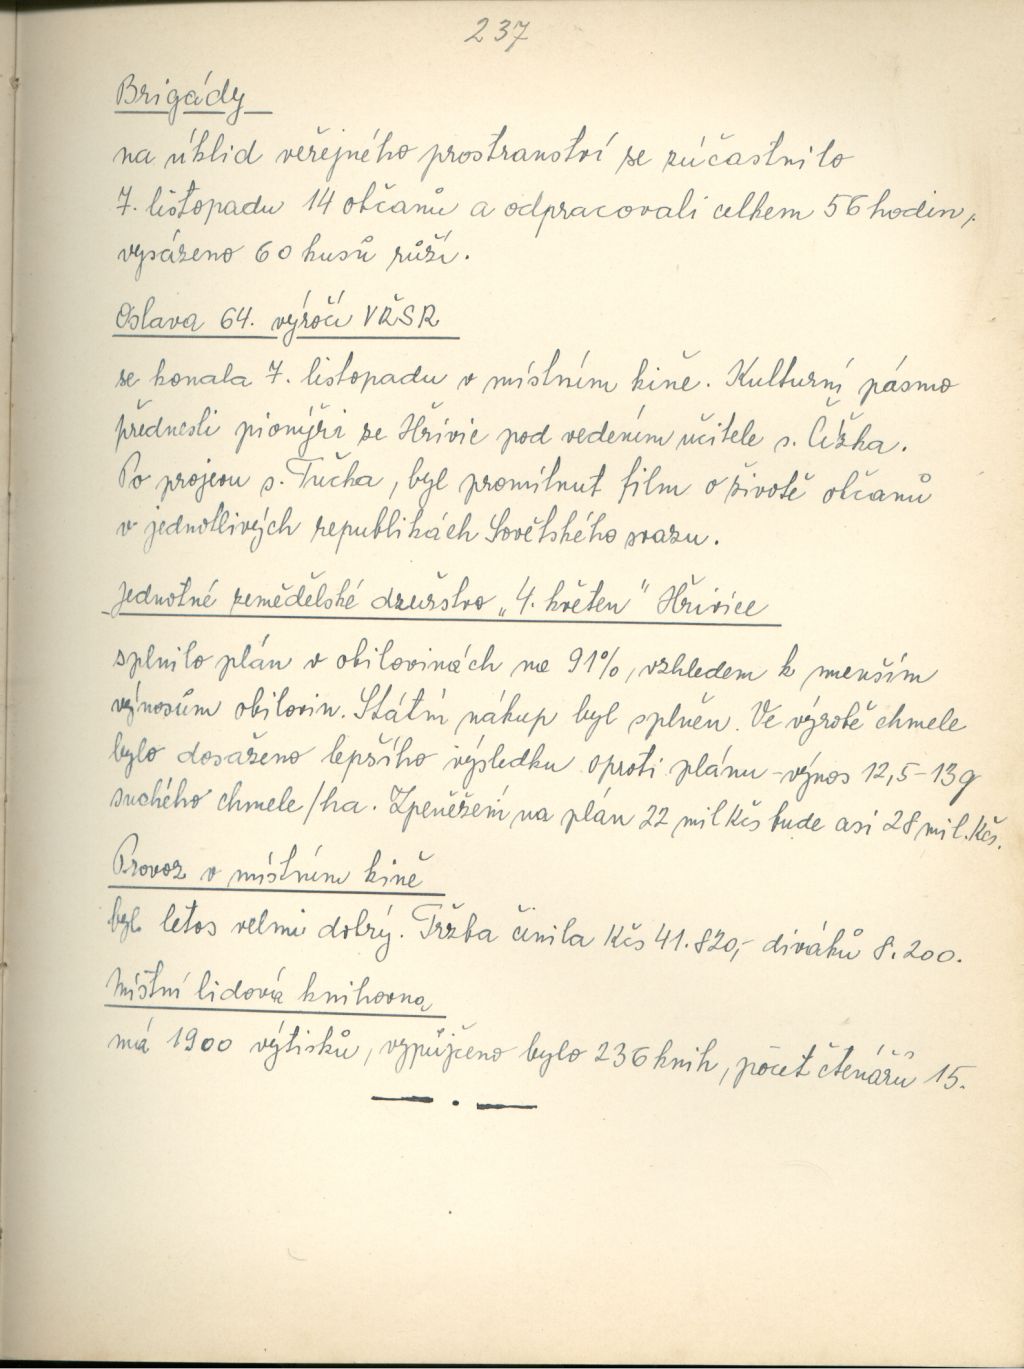 237
Brigády
na úklid veřejného prostranství se zúčastnilo
7. listopadu 14 občanů a odpracovali celkem 56 hodin,
vysázeno 60 kusů růží.
Oslava 64. výročí VŘSR
se konala 7. listopadu v místním kině. Kulturní pásmo
přednesli pionýři ze Hřivic pod vedením učitele s. Čížka.
Po projevu s. Tučka, byl promítnut film o životě občanů
v jednotlivých republikách Sovětského svazu.
Jednotné zemědělské družstvo „4. květen" Hřivice
splnilo plán v obilovinách na 91%, vzhledem k menším
výnosům obilovin. Státní nákup byl splněn. Ve výrobě chmele
bylo dosaženo lepšího výsledku oproti plánu - výnos 12,5-13q
suchého chmele/ha. Zpeněžení na plán 22 mil Kčs bude asi 28 mil. Kčs.
Provoz v místním kině
byl letos velmi dobrý. Tržba činila Kčs 41.820,- diváků 8.200.
Místní lidová knihovna
má 1900 výtisků, vypůjčeno bylo 236 knih, počet čtenářů 15.